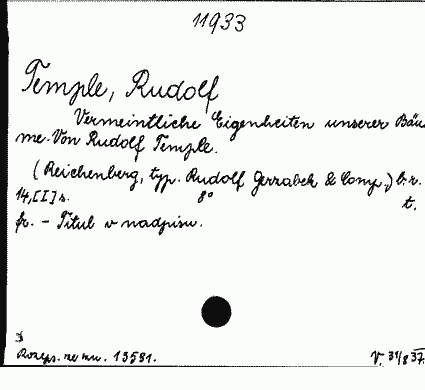 11933
Temple, Rudolf
Vermeintliche Eigenheiten unserer Bäu
me. Von Rudolf Temple.
(Reichenberg, typ. Rudolf Gerzabek & Comp.,) b.r.
14,[I] s. 8° t.
fr. - Titul w nadpisu.
13581.
V. 31/8 37.